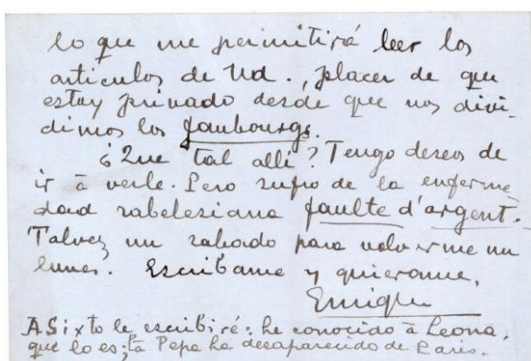 lo que me permitirá leer los
articulos de Ud., placer de que
estoy privado desde que nos divi-
dimos los faubourgs.
¿Que tal alli? Tengo deseos de
ir á verle. Pero sufro de la enferme
dad rabelesiana faulte d'argent.
Talvez un sabado para volverme un
lunes. Escribame y quierame,
Enrique
A Sixto le escribiré: he conocido á Leona,
que lo es; ta Pepa ha desaparecido de Paris.